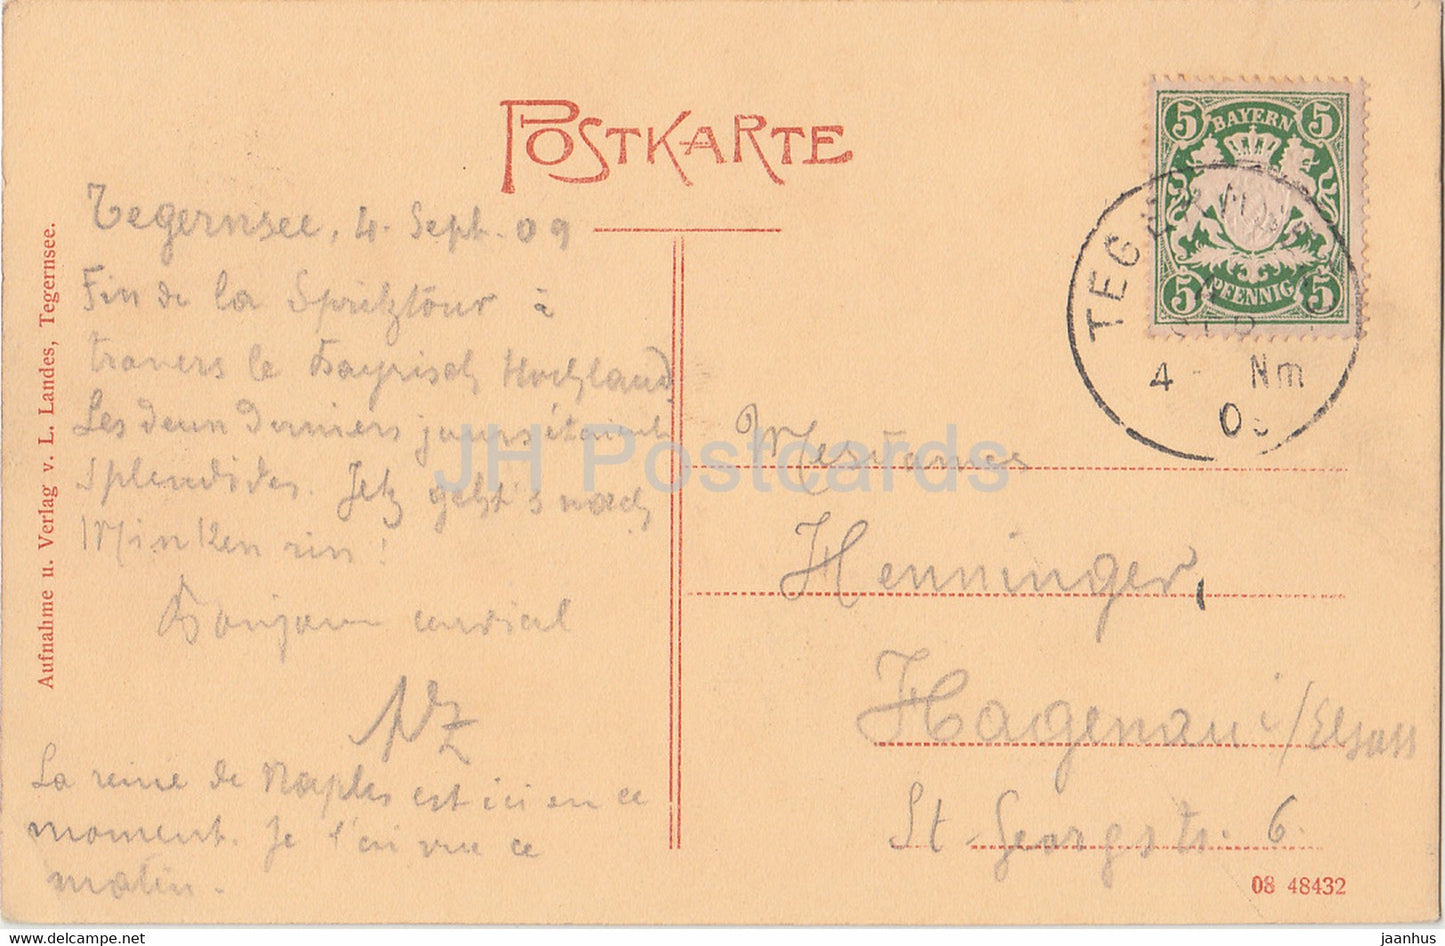 POSTKARTE
Tegernsee, 4. Sept. 09
Fin de la Spritztour à
travers le Bayrisch Hochland.
Les deux derniers jours étaient
splendides. Jetz geht's nach
Minken rin!
Bonjour cordial
La reine de Naples est ici en ce
moment. Je l'ai vue ce
matin.
Aufnahme u. Verlag v. L. Landes, Tegernsee.
5 BAYERN 5
5 PFENNIG 5
TEGERNSEE
4 SEP
4 - Nm
Henninger,
Hagenau i/Elsass
St. Georgstr. 6.
08 48432
JH Postcards
www.delcampe.net
jaanhus